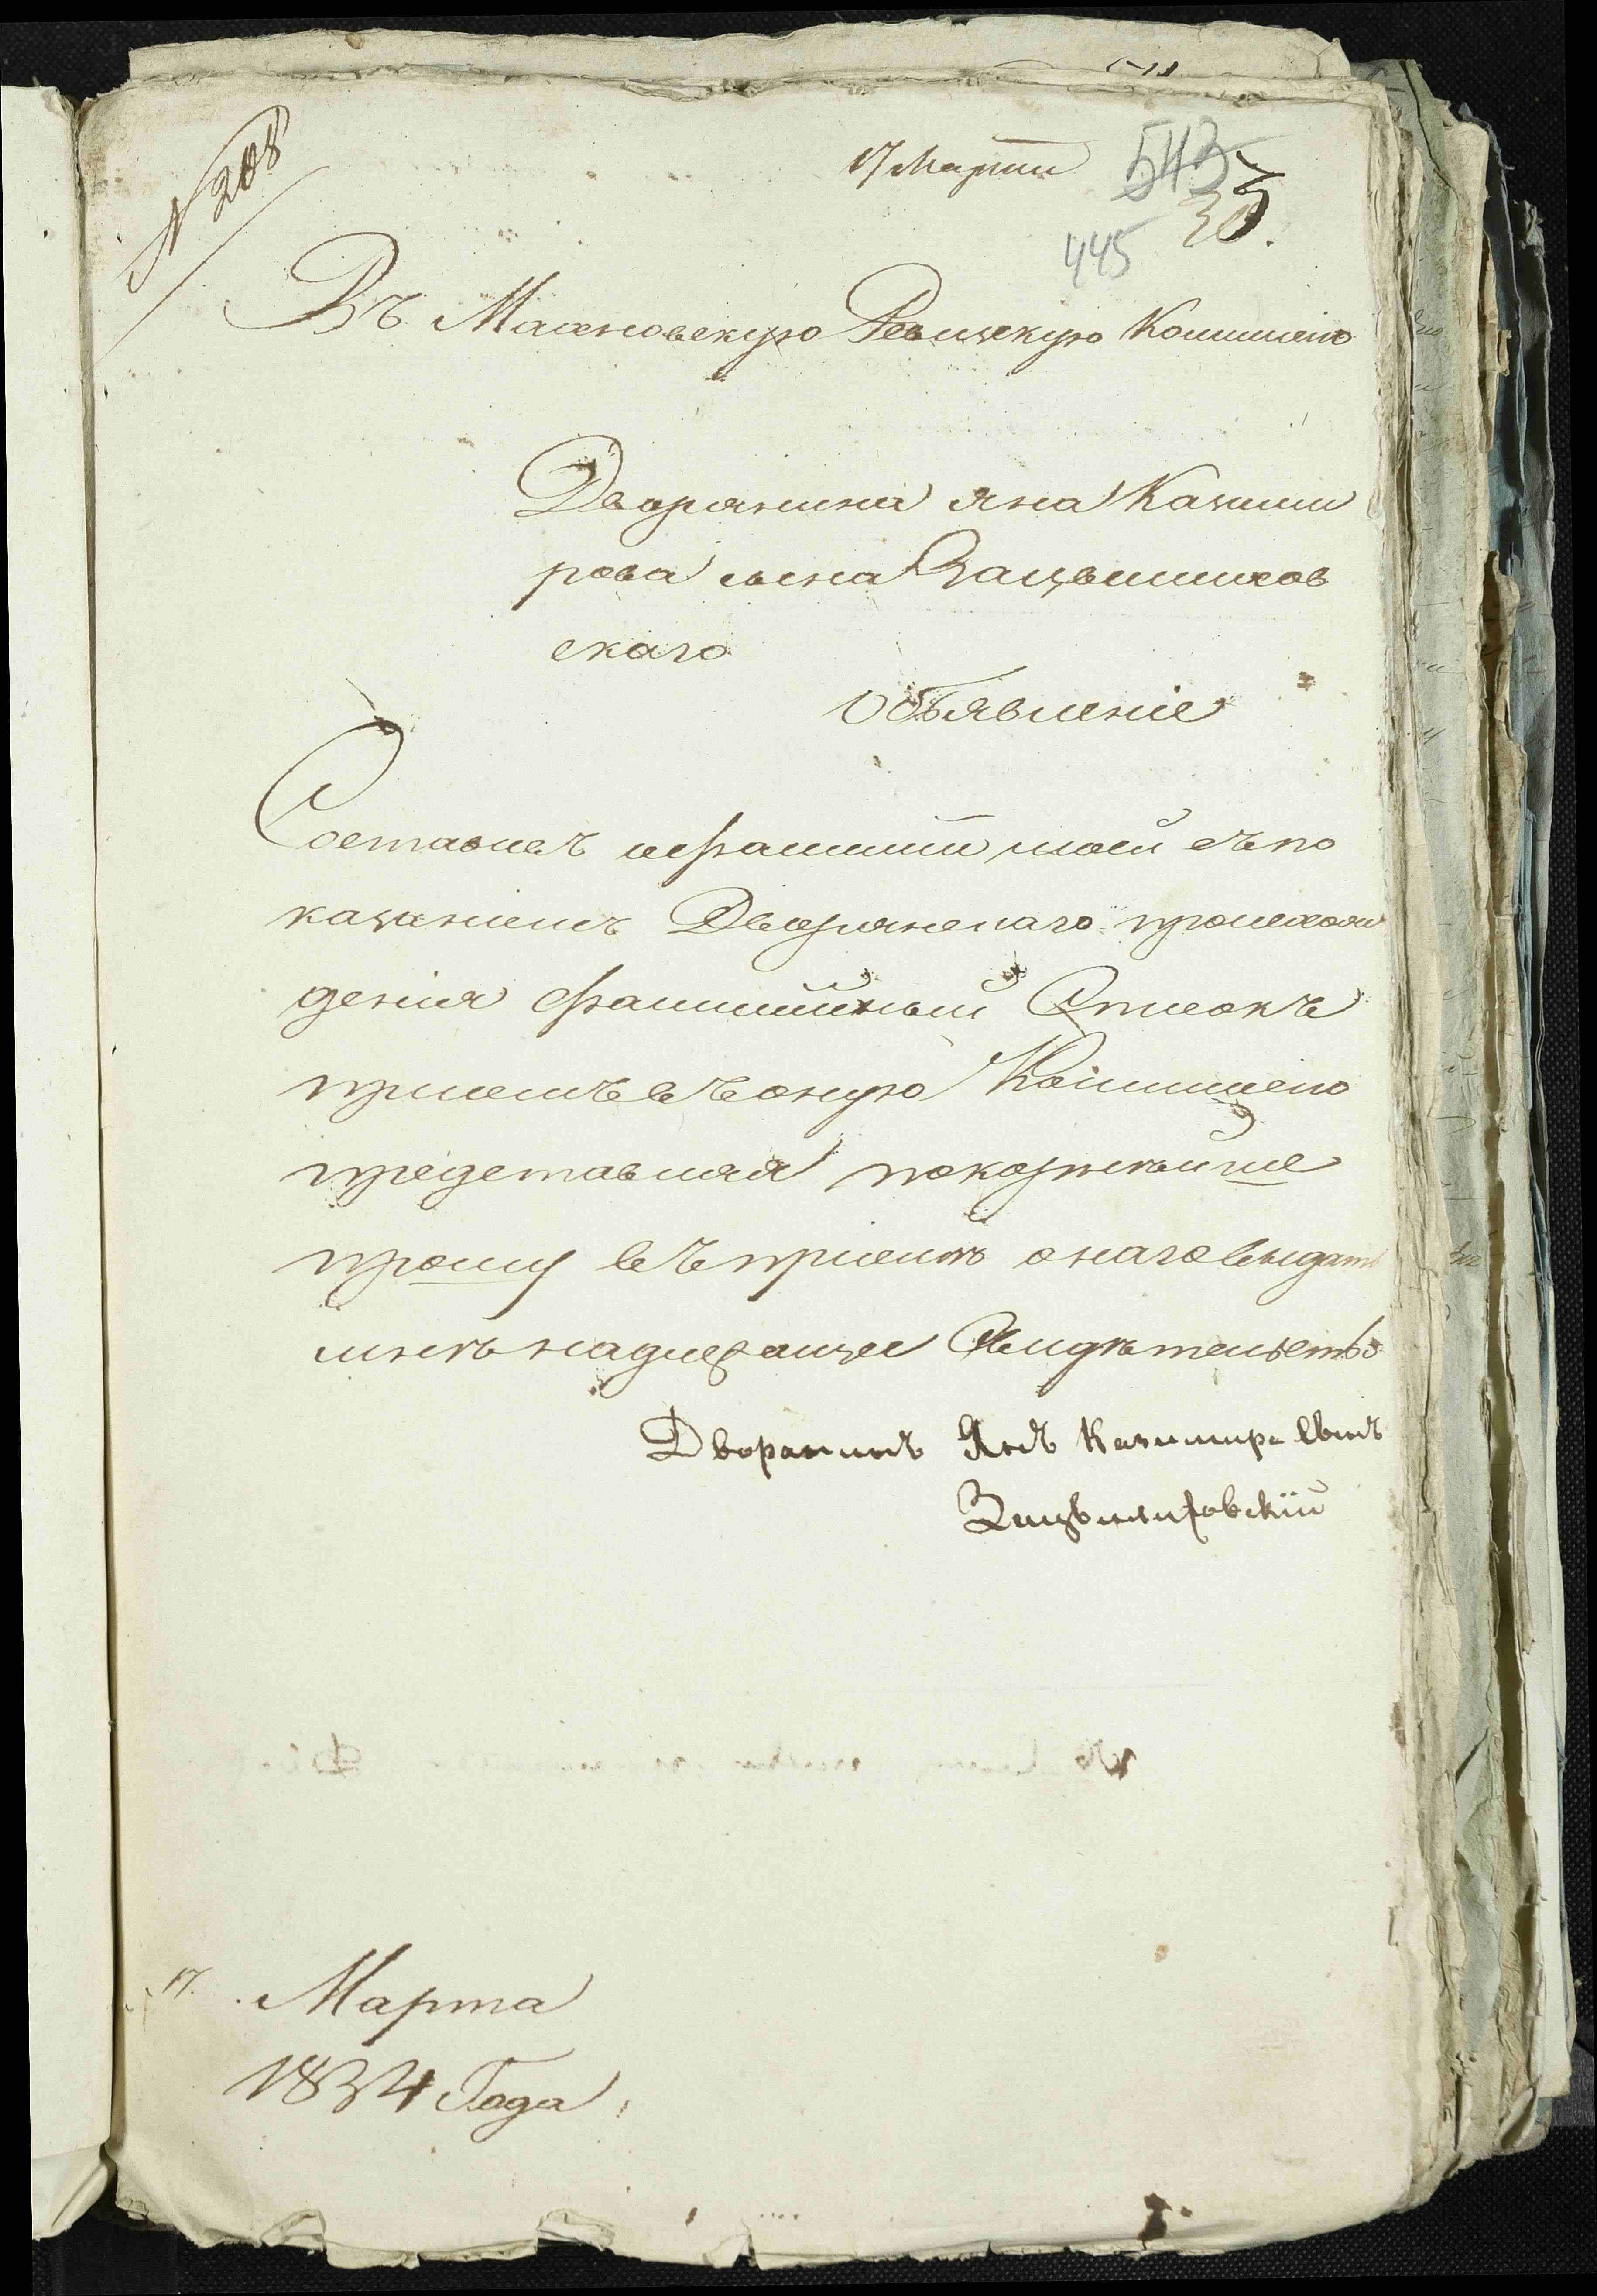 N 208
17 Марта
543
445
Въ Махновскую Ревизскую Комисію
Дворянина Яна Казими
рова сына Зацвилихов
скаго
Объявленіе
Составлъ офамиліи моей спо
казаніемъ Дворянскаго происхож
денія фамилійный Списокъ
присемъ въ оную Комисію
представляя покорнѣйше
прошу въ приемѣ онаго выдать
мнѣ надлежащее Свидѣтельство
Дворанинъ Янъ Казимира Сынъ
Зацвилиховскій
17. Марта
1834 Года